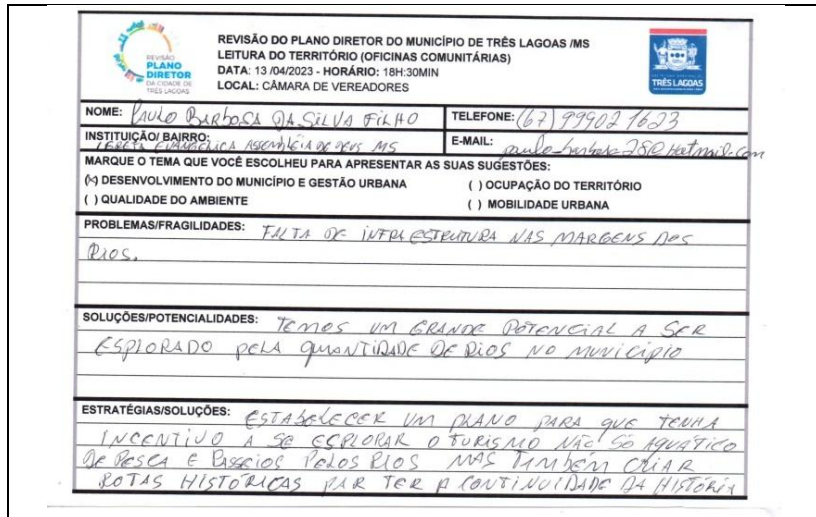 REVISÃO
PLANO
DIRETOR
DA CIDADE DE
TRÊS LAGOAS
REVISÃO DO PLANO DIRETOR DO MUNICÍPIO DE TRÊS LAGOAS /MS
LEITURA DO TERRITÓRIO (OFICINAS COMUNITÁRIAS)
DATA: 13 /04/2023 - HORÁRIO: 18H:30MIN
LOCAL: CÂMARA DE VEREADORES
TRÊS LAGOAS
NOME: PAULO BARBOSA DA SILVA FILHO
TELEFONE: (67) 99902 1623
INSTITUIÇÃO/ BAIRRO: IGREJA EVANGÉLICA ASSEMBLÉIA DE DEUS MS
E-MAIL: paulo-barbosa28@Hotmail.com
MARQUE O TEMA QUE VOCÊ ESCOLHEU PARA APRESENTAR AS SUAS SUGESTÕES:
(x) DESENVOLVIMENTO DO MUNICÍPIO E GESTÃO URBANA
( ) OCUPAÇÃO DO TERRITÓRIO
( ) QUALIDADE DO AMBIENTE
( ) MOBILIDADE URBANA
PROBLEMAS/FRAGILIDADES: FALTA DE INFRA ESTRUTURA NAS MARGENS DOS
RIOS.
SOLUÇÕES/POTENCIALIDADES: TEMOS UM GRANDE POTENCIAL A SER
ESPLORADO PELA QUANTIDADE DE RIOS NO MUNICÍPIO
ESTRATÉGIAS/SOLUÇÕES: ESTABELECER UM PLANO PARA QUE TENHA
INCENTIVO A SE ESPLORAR O TURISMO NÃO SÓ AQUÁTICO
DE PESCA E PASSEIOS PELOS RIOS MAS TAMBÉM CRIAR
ROTAS HISTÓRICAS PAR TER A CONTINUIDADE DA HISTÓRIA